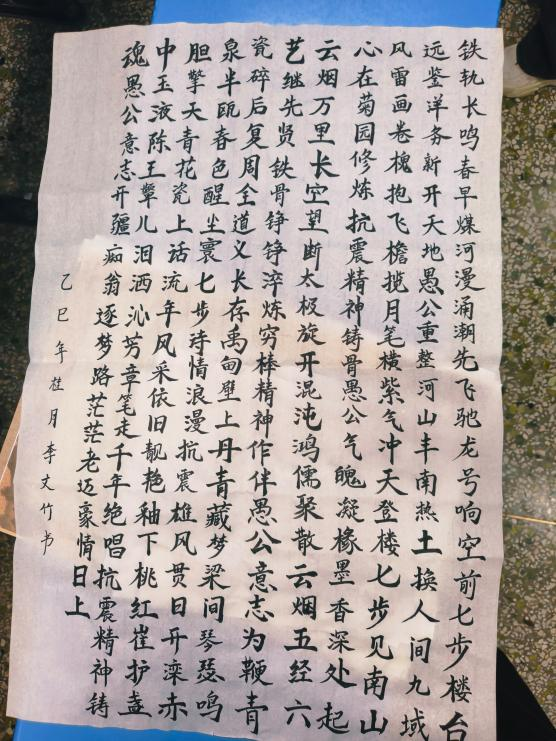 铁轨长鸣春早煤河漫涌潮先飞驰龙号响空前七步楼台
远鉴洋务新开天地愚公重整河山丰南热土换人间九域
风雷画卷槐抱飞檐揽月笔横紫气冲天登楼七步见南山
心在菊园修炼抗震精神铸骨愚公气魄凝椽墨香深处起
云烟万里长空望断太极旋开混沌鸿儒聚散云烟五经六
艺继先贤铁骨铮铮淬炼穷棒精神作伴愚公意志为鞭青
瓷碎后复周全道义长存禹甸壁上丹青藏梦梁间琴瑟鸣
泉半瓯春色醒尘寰七步诗情浪漫抗震雄风贯日开滦赤
胆擎天青花瓷上话流年风采依旧靓艳釉下桃红崔护盏
中玉液陈王颦儿泪洒沁芳章笔走千年绝唱抗震精神铸
魂愚公意志开疆痴翁逐梦路茫茫老迈豪情日上
乙巳年桂月李文竹书